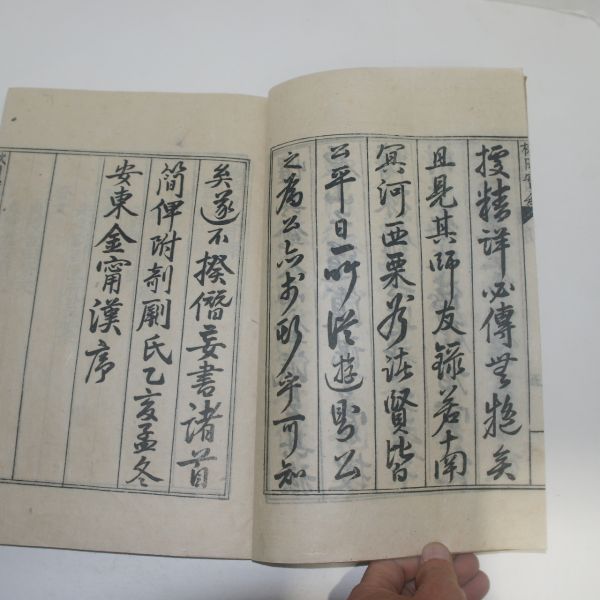 授精詳必傳無疑矣
且見其師友錄若南
冥河西栗谷諸賢皆
公平日所從遊則公
之爲公亦於斯乎可知
矣遂不揆僭妄書諸首
簡俾附剞劂氏乙亥孟冬
安東金甯漢序